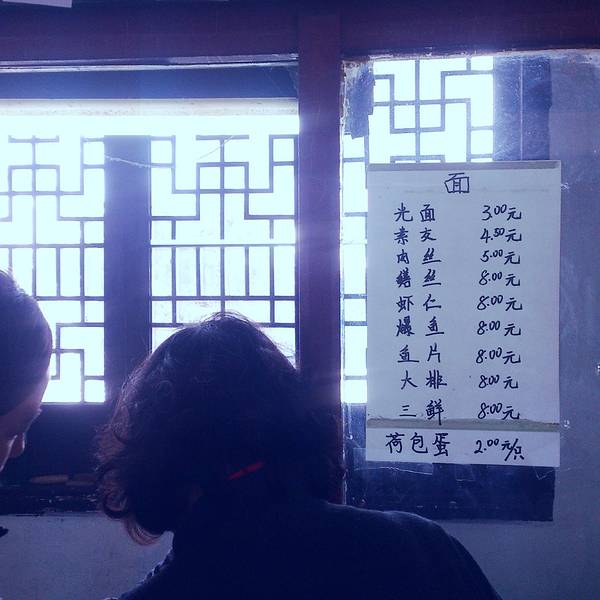 面
光面 3.00元
素交 4.50元
肉丝 5.00元
鳝丝 8.00元
虾仁 8.00元
爆鱼 8.00元
鱼片 8.00元
大排 8.00元
三鲜 8.00元
荷包蛋 2.00元/只